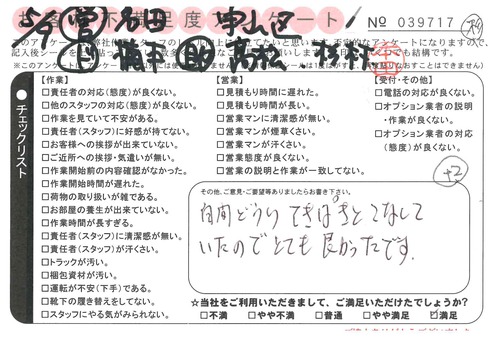 足度
ート
№ 039717
5/9 営 石田 中山区
梅本 助 柏松 杉村
チェックリスト
【作業】
□責任者の対応(態度)が良くない。
□他のスタッフの対応(態度)が良くない。
□作業を見ていて不安がある。
□責任者(スタッフ)に好感が持てない。
□お客様への挨拶が出来ていない。
□ご近所への挨拶・気遣いが無い。
□作業開始前の内容確認がなかった。
□作業開始時間が遅れた。
□荷物の取り扱いが雑である。
□お部屋の養生が出来ていない。
□作業時間が長すぎる。
□責任者(スタッフ)に清潔感が無い。
□責任者(スタッフ)が汗くさい。
□トラックが汚い。
□梱包資材が汚い。
□運転が不安(下手)である。
□靴下の履き替えをしてない。
□スタッフにやる気がみられない。
【営業】
□見積もり時間に遅れた。
□見積もり時間が長い。
□営業マンに清潔感が無い。
□営業マンが煙草くさい。
□営業マンが汗くさい。
□営業態度が良くない。
□営業の説明と作業が一致してない。
【受付・その他】
□電話の対応が良くない。
□オプション業者の説明
・作業が良くない。
□オプション業者の対応
(態度)が良くない。
+2
その他、ご意見・ご要望等ありましたらお書き下さい。
時間どうり てきぱきとこなして
いたので とても 良かったです。
☆当社をご利用いただきまして、ご満足いただけたでしょうか?
□不満 □やや不満 □普通 □やや満足 ☑満足